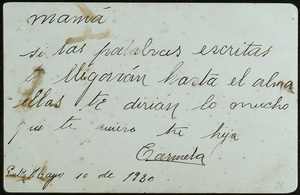 mamá
si las palabras escritas
llegarán hasta el alma
ellas te dirian lo mucho
que te quiero tu hija
Carmela
Mayo 10 de 1930